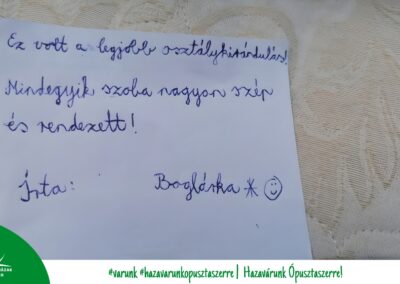 Ez volt a legjobb osztálykirándulás!
Mindegyik szoba nagyon szép
és rendezett!
Írta: Boglárka
#varunk #hazavarunkopusztaszerre | Hazavárunk Ópusztaszerre!